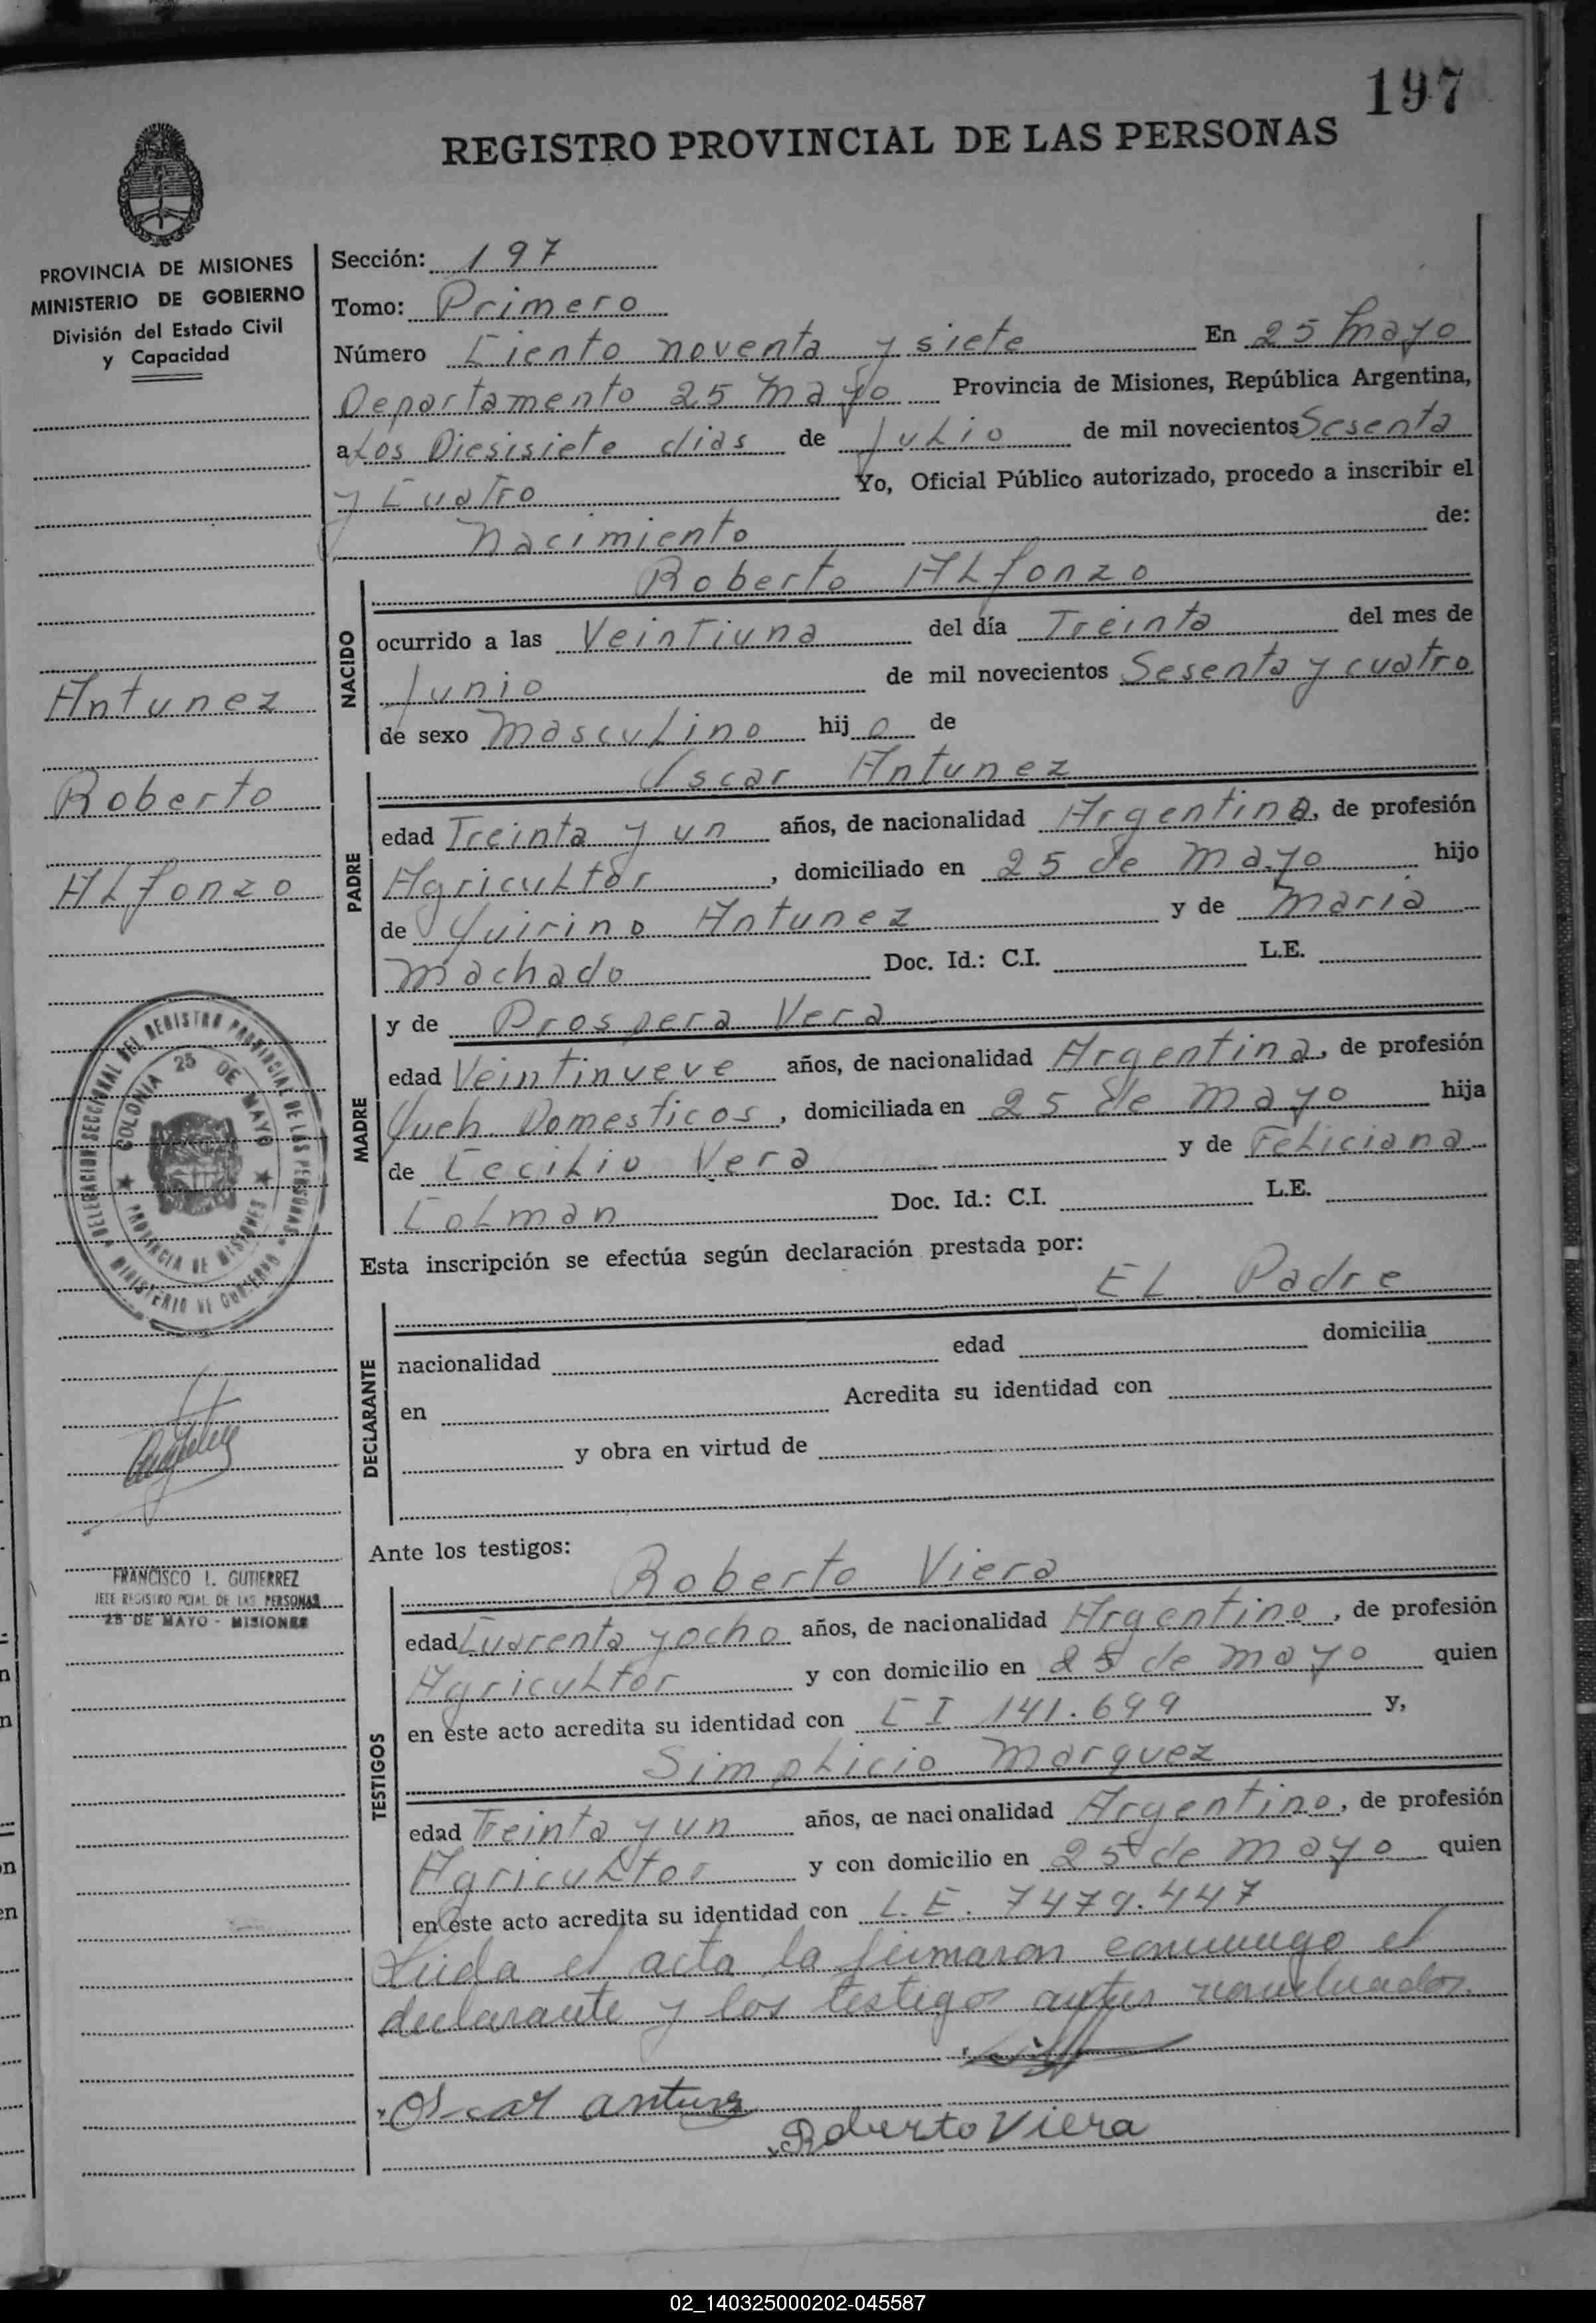 197
REGISTRO PROVINCIAL DE LAS PERSONAS
PROVINCIA DE MISIONES
MINISTERIO DE GOBIERNO
División del Estado Civil
y Capacidad
Antunez
Roberto
ALfonzo
DELEGACION SECCIONAL DEL REGISTRO PROVINCIAL DE LAS PERSONAS
MINISTERIO DE GOBIERNO
COLONIA 25 DE MAYO
PROVINCIA DE MISIONES
FRANCISCO I. GUTIERREZ
JEFE REGISTRO PCIAL. DE LAS PERSONAS
25 DE MAYO - MISIONES
Sección: 197
Tomo: Primero
Número Ciento noventa y siete En 25 Mayo
Departamento 25 Mayo Provincia de Misiones, República Argentina,
a Los Diesisiete dias de Julio de mil novecientos Sesenta
y Cuatro Yo, Oficial Público autorizado, procedo a inscribir el
Nacimiento de:
Roberto ALfonzo
NACIDO
ocurrido a las Veintiuna del día Treinta del mes de
Junio de mil novecientos Sesenta y cuatro
de sexo Masculino hijo de
Oscar Antunez
PADRE
edad Treinta y un años, de nacionalidad Argentina, de profesión
AgricuLtor, domiciliado en 25 de Mayo hijo
de Quirino Antunez y de Maria
Machado Doc. Id.: C.I. L.E.
y de Prospera Vera
MADRE
edad Veintinueve años, de nacionalidad Argentina, de profesión
Queh. Domesticos, domiciliada en 25 de Mayo hija
de CeciLio Vera y de FeLiciana
CoLman Doc. Id.: C.I. L.E.
Esta inscripción se efectúa según declaración prestada por:
EL Padre
DECLARANTE
nacionalidad edad domicilia
en Acredita su identidad con
y obra en virtud de
Ante los testigos:
Roberto Viera
TESTIGOS
edad Cuarenta y ocho años, de nacionalidad Argentino, de profesión
AgricuLtor y con domicilio en 25 de Mayo quien
en este acto acredita su identidad con CI 141.699 y,
SimpLicio Marquez
edad Treinta y un años, de nacionalidad Argentino, de profesión
AgricuLtor y con domicilio en 25 de Mayo quien
en este acto acredita su identidad con L.E. 7479.447
Leida el acta la firmaron conmigo el
declarante y los testigos antes
Oscar antunez
Roberto Viera
02_140325000202-045587